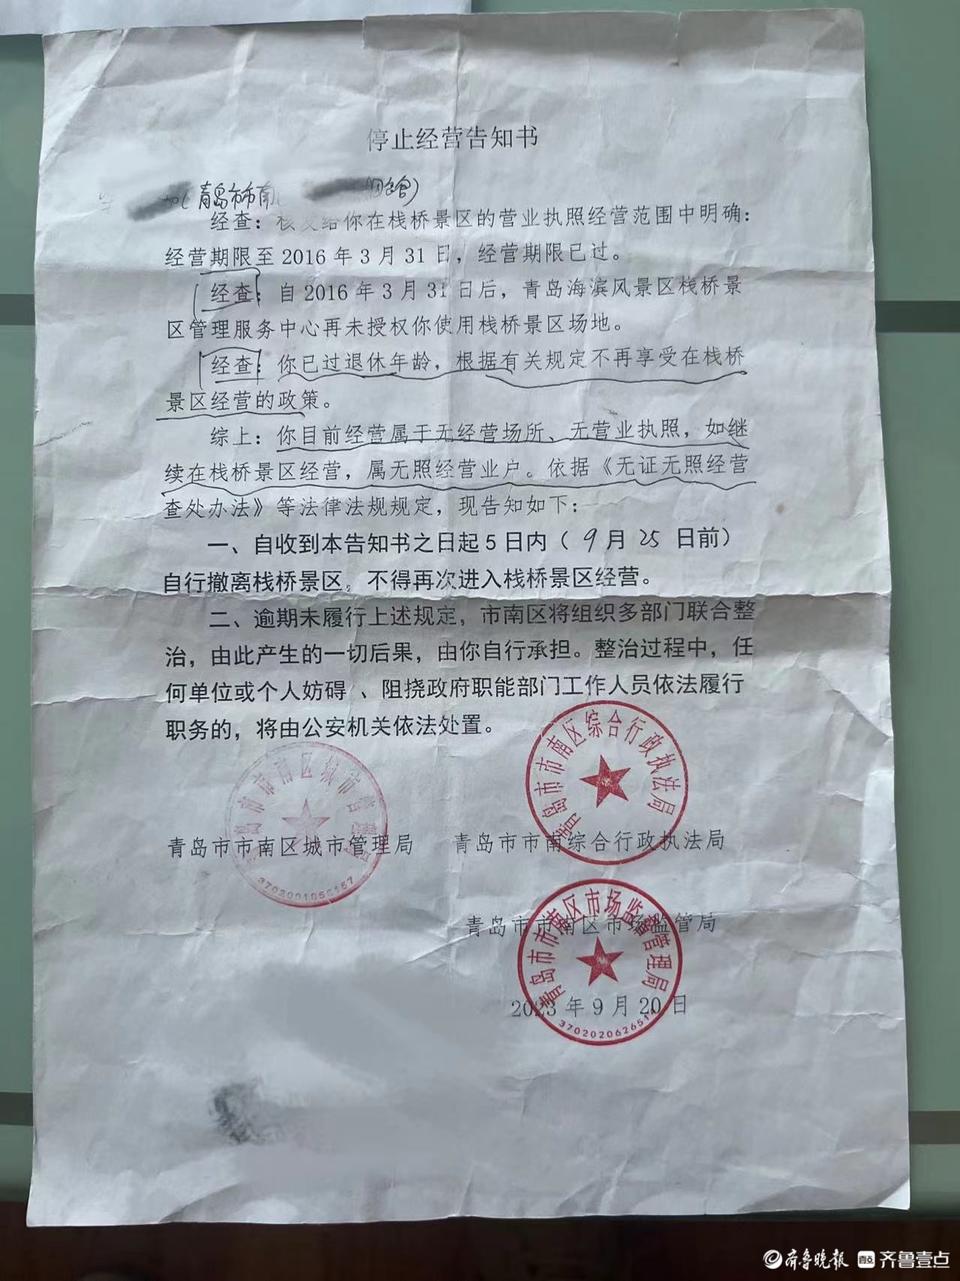 停止经营告知书
(青岛市市南
经查：核发给你在栈桥景区的营业执照经营范围中明确：
经营期限至2016年3月31日，经营期限已过。
经查：自2016年3月31日后，青岛海滨风景区栈桥景
区管理服务中心再未授权你使用栈桥景区场地。
经查：你已过退休年龄，根据有关规定不再享受在栈桥
景区经营的政策。
综上：你目前经营属于无经营场所、无营业执照，如继
续在栈桥景区经营，属无照经营业户。依据《无证无照经营
查处办法》等法律法规规定，现告知如下：
一、自收到本告知书之日起5日内（9月25日前）
自行撤离栈桥景区。不得再次进入栈桥景区经营。
二、逾期未履行上述规定，市南区将组织多部门联合整
治，由此产生的一切后果，由你自行承担。整治过程中，任
何单位或个人妨碍、阻挠政府职能部门工作人员依法履行
职务的，将由公安机关依法处置。
青岛市市南区城市管理局
青岛市市南区综合行政执法局
青岛市市南区城市管理局 青岛市市南综合行政执法局
青岛市市南区市场监管局
青岛市市南区市场监督管理局
2023年9月20日
齐鲁晚报 齐鲁壹点